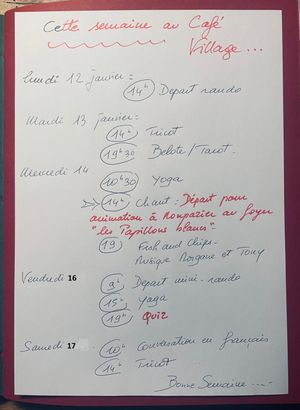 Cette semaine au Café
Village...
Lundi 12 janvier:
14h Depart rando
Mardi 13 janvier:
14h Tricot
19h30 Belote/Tarot.
Mercredi 14
10h30 Yoga
14h Chant: Départ pour
animation à Monpazier au foyer
"les Papillons blancs"
19 Fish and Chips
Musique Morgane et Tony
Vendredi 16
9h Depart mini-rando
15h Yoga
19h QUIZ
Samedi 17
10h Conversation en français
14h Tricot
Bonne Semaine....